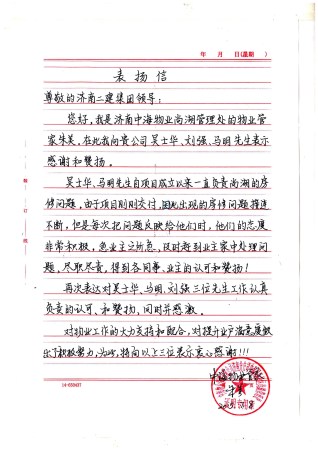 年 月 日(星期 )
表扬信
尊敬的济南二建集团领导:
您好,我是济南中海物业尚湖管理处的物业管
家朱芙,在此我向贵公司吴士华、刘强、马明先生表示
感谢和赞扬。
吴士华、马明先生自项目成立以来一直负责尚湖的房
修问题,由于项目刚刚交付,因此出现的房修问题接连
不断,但是每次把问题反映给他们时,他们的态度
非常积极,急业主之所急,及时赶到业主家中处理问
题,尽职尽责,得到各同事、业主的认可和赞扬!
再次表达对吴士华、马明、刘强三位先生工作认真
负责的认可、和赞扬,同时并感激
对物业工作的大力支持和配合,对提升业户满意度做
出了积极努力,为此,特向以上三位表示衷心感谢!!!
中海物业